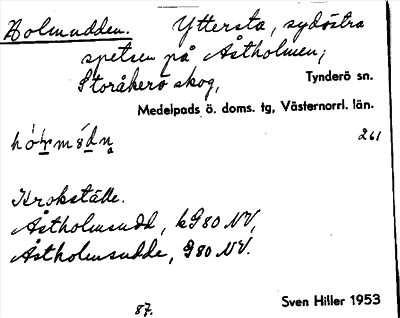 Holmudden. Yttersta, sydöstra
spetsen på Åstholmen;
Storåkers skog, Tynderö sn.
Medelpads ö. doms. tg, Västernorrl. län.
261
Krokställe.
Åstholmsudd, k980 NV,
Åstholmsudde, 980 NV.
87.
Sven Hiller 1953